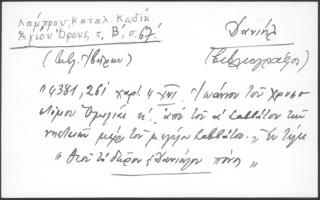 Λάμπρου, Καταλ. Κωδίκ.
Ἁγίου Ὄρους, τ. Β΄, σ. 67.
Δανιήλ
(Βιβλιογράφος)
4381, 261 χαρτ. 4 XVI. Ἰωάννου τοῦ Χρυσο
στόμου Ὁμιλίαι ἀπὸ τοῦ α΄ Σαββάτου τῶν
νηστειῶν μέχρι τοῦ μεγάλου Σαββάτου. Ἐν τέλει
"Θεοῦ τὸ δῶρον Δανιήλου πόνος"